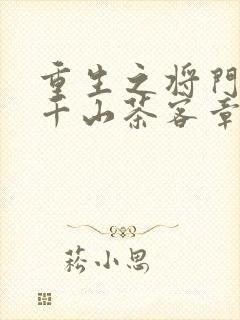 重生之将门
千山茶客章
菘小思